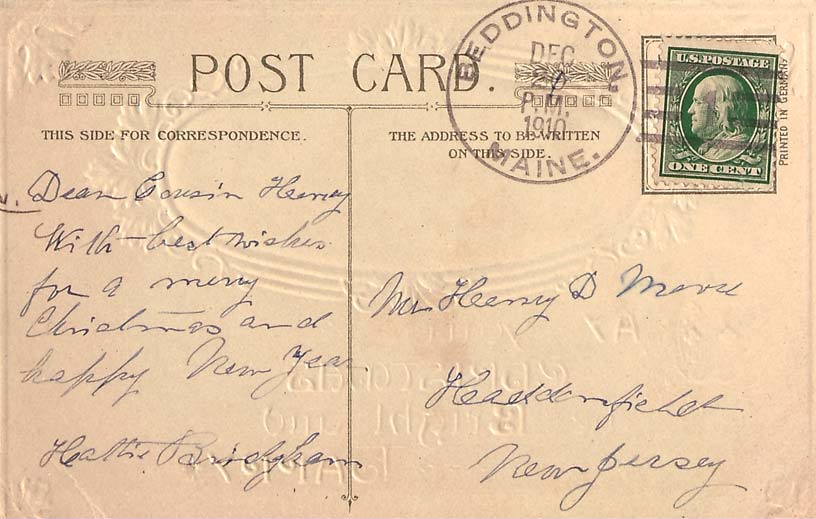 POST CARD.
THIS SIDE FOR CORRESPONDENCE.
THE ADDRESS TO BE WRITTEN
ON THIS SIDE.
BEDDINGTON,
DEC
20
P.M.
1910
MAINE.
U.S. POSTAGE
1
ONE CENT
PRINTED IN GERMANY
Dear Cousin Henry
With best wishes
for a merry
Christmas and
happy New Year
Hattie Bridgham
Mr Henry D Moore
Haddonfield
New Jersey
Bright and
Happy